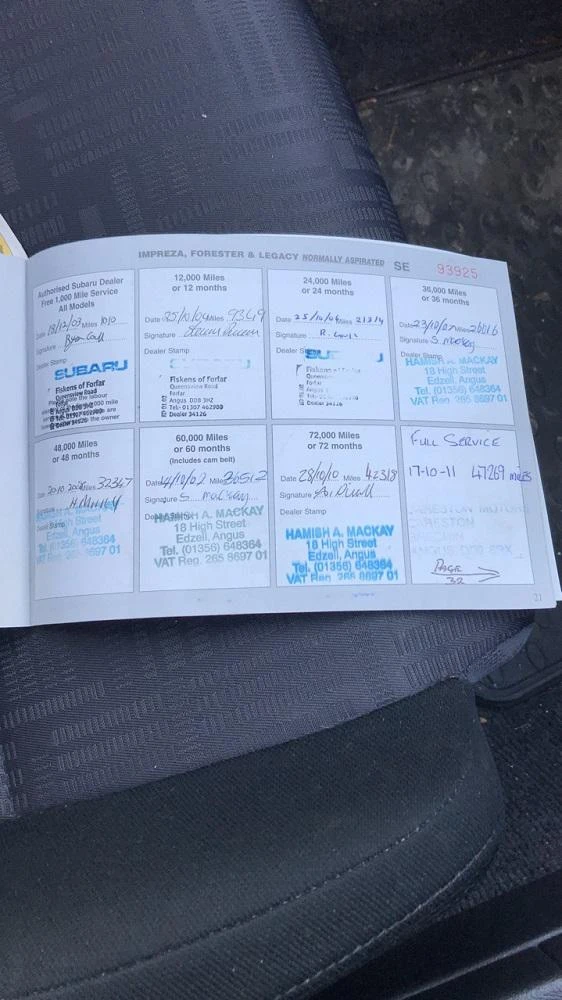 IMPREZA, FORESTER & LEGACY NORMALLY ASPIRATED SE 93925
Authorised Subaru Dealer
Free 1,000 Mile Service
All Models
Date 18/12/03 Miles 1010
Signature
Dealer Stamp
SUBARU
Fiskens of Forfar
Queensview Road
Forfar
12,000 Miles
or 12 months
Date 25/10/04 Miles 9349
Signature
Dealer Stamp
Fiskens of Forfar
Queensview Road
Forfar
Angus DD8 3HZ
Tel:- 01307 462900
Dealer 34126
24,000 Miles
or 24 months
Date 25/10/06 Miles 21314
Signature R.
Dealer
Fiskens of
Forfar
Dealer 34126
36,000 Miles
or 36 months
Date 23/10/07 Miles 26616
Signature S.
Dealer Stamp
HAMISH A. MACKAY
18 High Street
Edzell, Angus
Tel. (01356) 648364
VAT Reg. 265 8697 01
48,000 Miles
or 48 months
Date 20.10. Miles 32347
Signature
Dealer Stamp
High Street
Edzell, Angus
Tel. (01356) 648364
VAT Reg. 265 8697 01
60,000 Miles
or 60 months
(Includes cam belt)
Date Miles 36512
Signature S. Mackay
HAMISH A. MACKAY
18 High Street
Edzell, Angus
Tel. (01356) 648364
VAT Reg. 265 8697 01
72,000 Miles
or 72 months
Date 28/10/10 Miles 42318
Signature
Dealer Stamp
HAMISH A. MACKAY
18 High Street
Edzell, Angus
Tel. (01356) 648364
VAT Reg. 265 8697 01
FULL SERVICE
17-10-11 47269 MILES
CARESTON MOTORS
CARESTON
BRECHIN
ANGUS DD9
PAGE
32
21